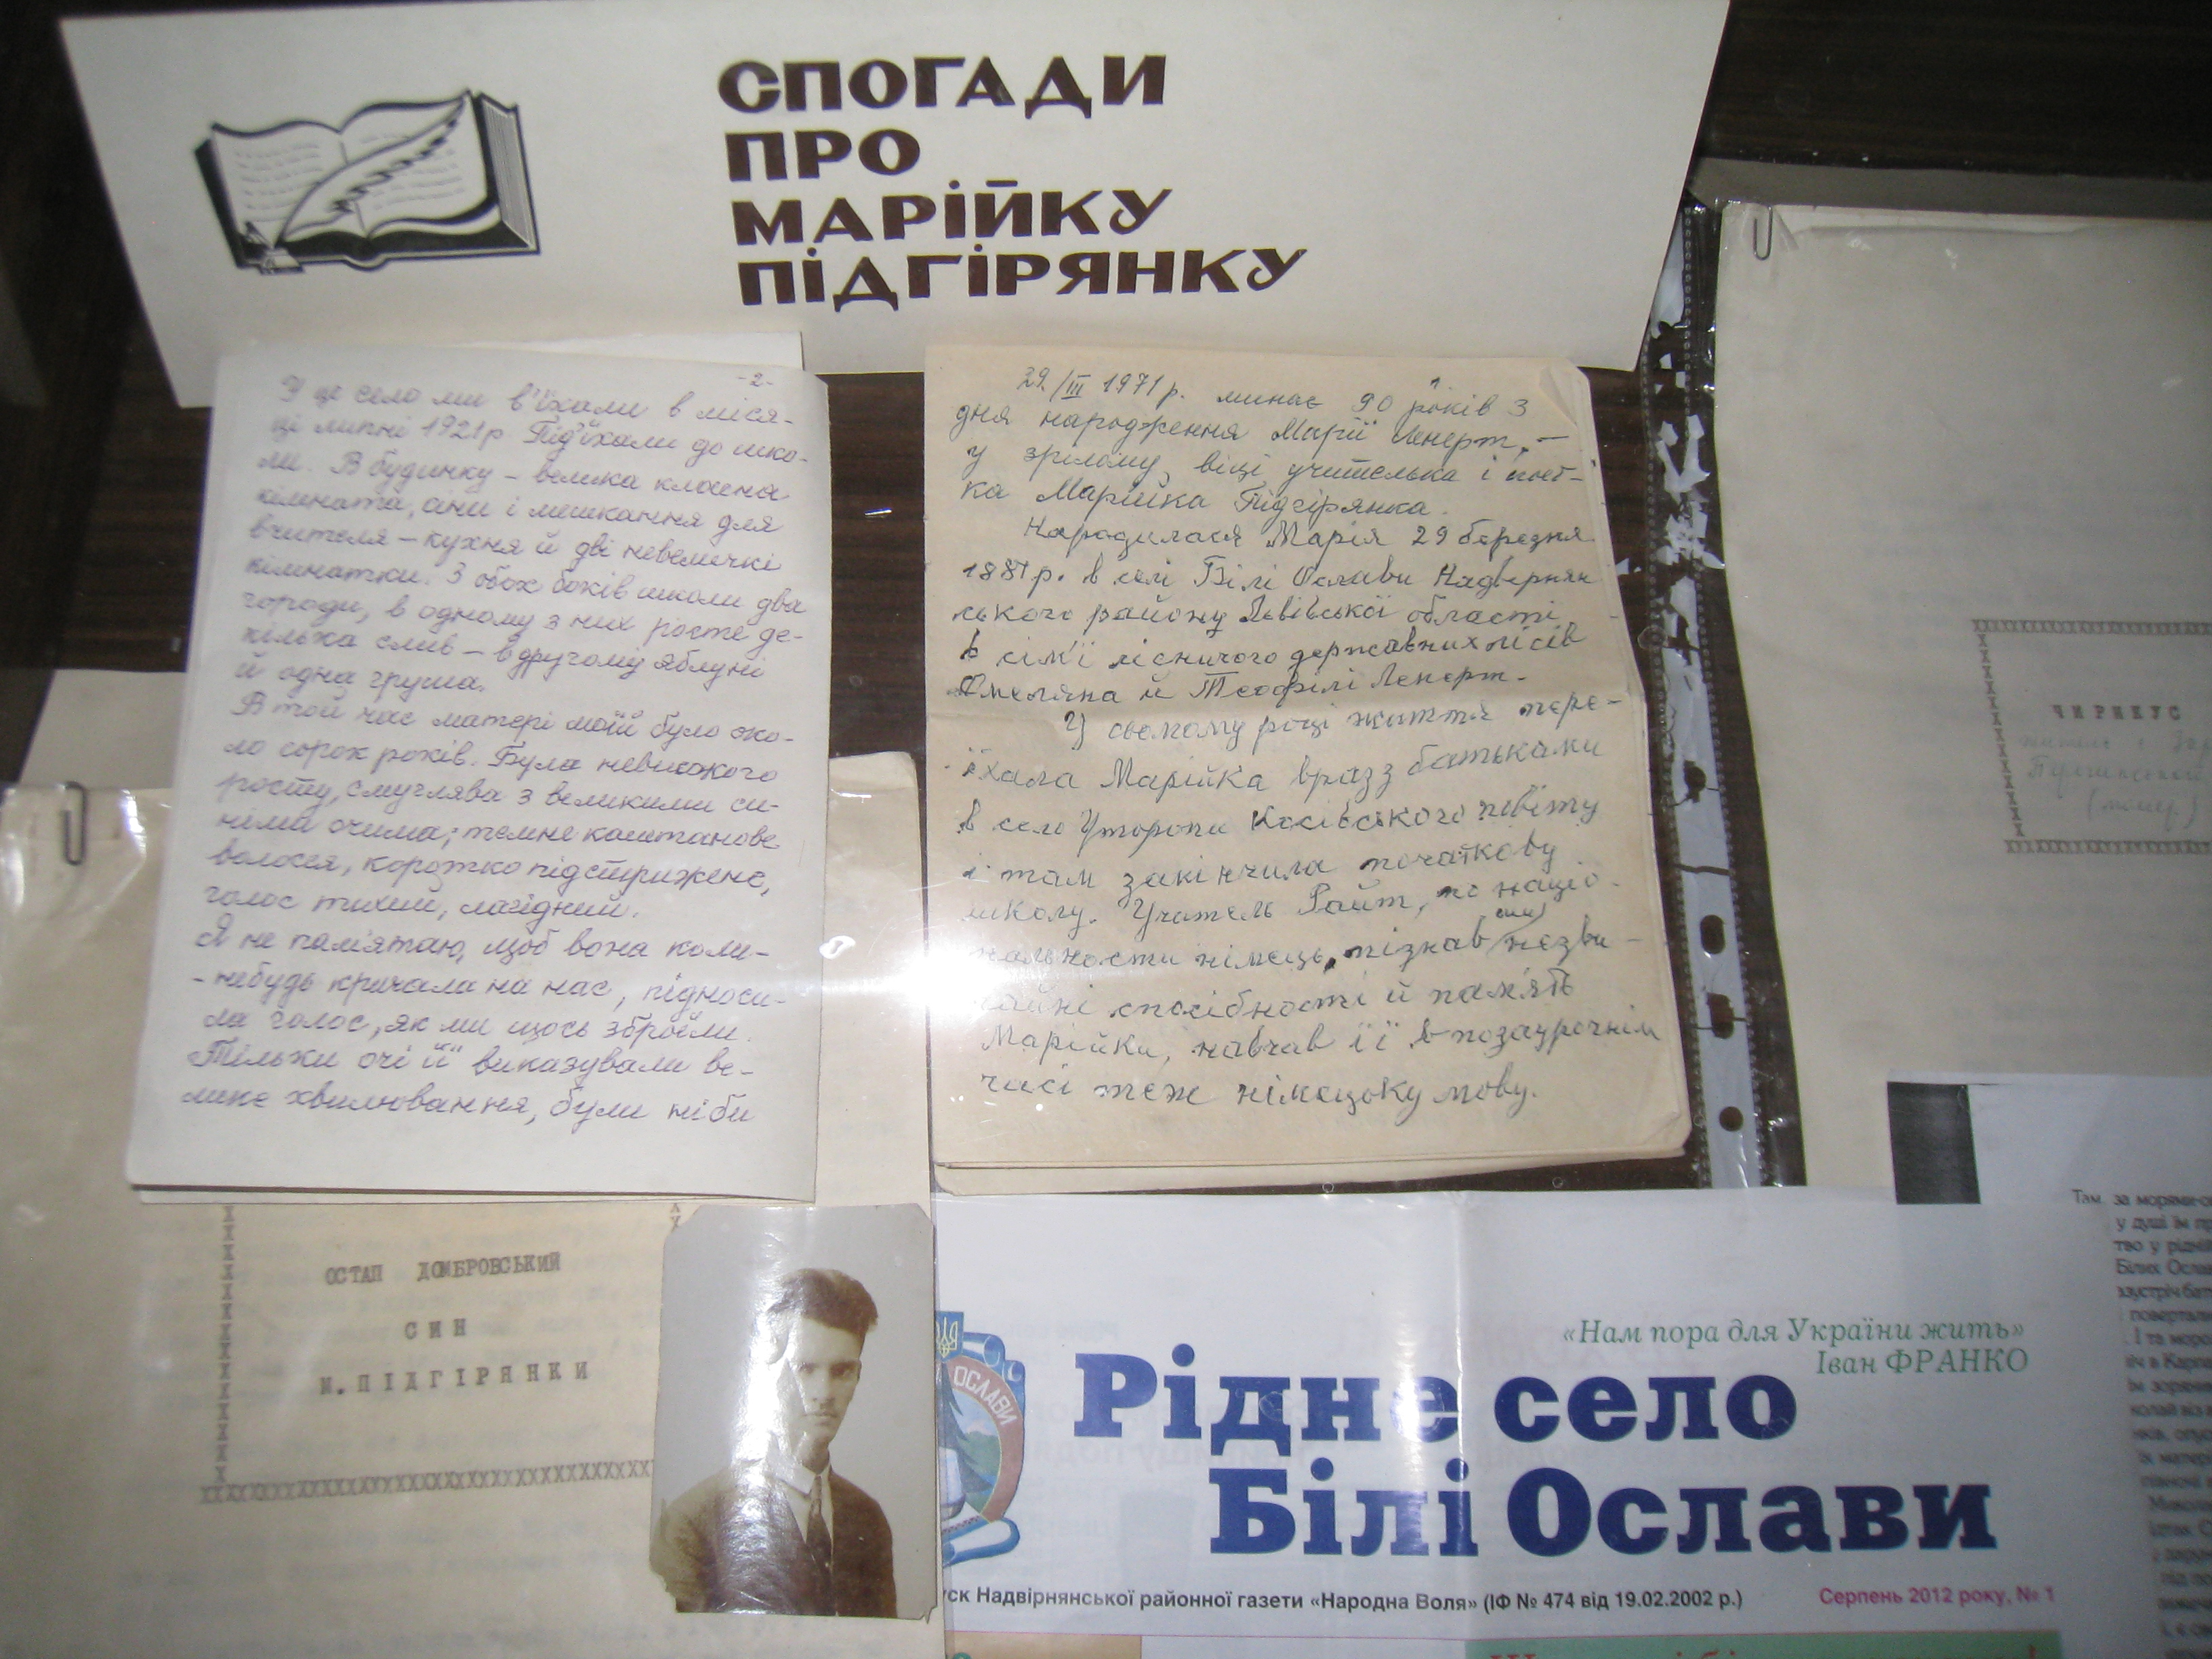 СПОГАДИ
ПРО
МАРІЙКУ
ПІДГІРЯНКУ
-2-
У це село ми в'їхали в міся-
ці липні 1921р Під'їхали до шко-
ли. В будинку – велика класна
кімната, сіни і мешкання для
вчителя – кухня й дві невеличкі
кімнатки. З обох боків школи два
городи, в одному з них росте де-
кілька слив – в другому яблуні
й одна груша.
В той час матері моїй було око-
ло сорок років. Була невисокого
росту, смуглява з великими си-
німи очима; темне каштанове
волосся, коротко підстрижене,
голос тихий, лагідний.
Я не пам'ятаю, щоб вона коли-
-небудь кричала на нас, підноси-
ла голос, як ми щось зброїли.
Тільки очі її виказували ве-
лике хвилювання, були ніби
29./III 1971р. минає 90 років з
дня народження Марії Ленерт, –
у зрілому віці учителька і поет-
ка Марійка Підгірянка.
Народилася Марія 29 березня
1881р. в селі Білі Ослави Надвірнян
ського району Львівської області
в сім'ї лісничого державних лісів
Омеляна й Теофілі Ленерт.
У сьомому році життя пере-
їхала Марійка враз з батьками
в село Уторопи Косівського повіту
і там закінчила початкову
школу. Учитель Райт, по націо-
нальности німець, пізнав незви-
чайні спосібності й пам'ять
Марійки, навчав її в позаурочнім
часі теж німецьку мову.
ЧИРИКУС
ОСТАП ДОМБРОВСЬКИЙ
СИН
М.ПІДГІРЯНКИ
ОСЛАВИ
«Нам пора для України жить»
Іван ФРАНКО
Рідне село
Білі Ослави
ск Надвірнянської районної газети «Народна Воля» (ІФ № 474 від 19.02.2002 р.)
Серпень 2012 року, № 1
Там, за морями-о
у душі їм пр
тво у рідній
Білих Осла